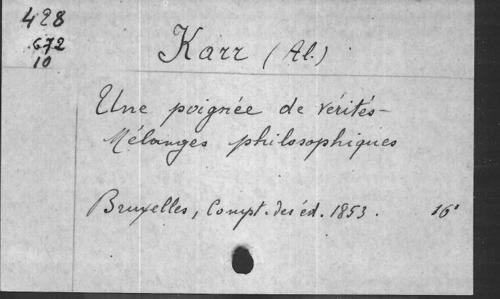 428
672
10
Karr (Al.)
Une poignée de vérités-
Mélanges philosophiques
Bruxelles, Compt. des éd. 1853. 16°